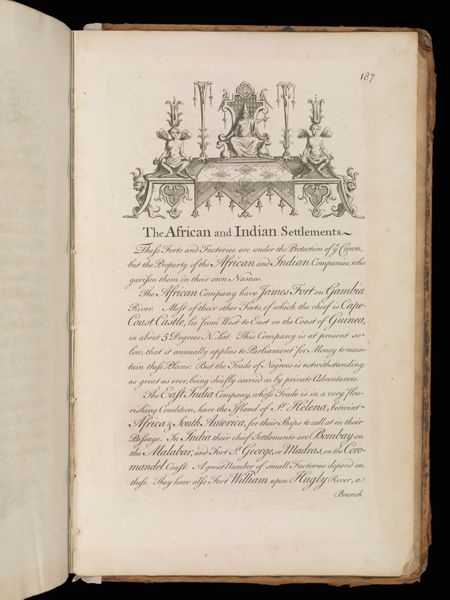 187
The African and Indian Settlements.~
These Forts and Factories are under the Protection of yͤ Crown,
but the Property of the African and Indian Companies, who
garison them in their own Names.
The African Company have James Fort on Gambia
River. Most of their other Forts, of which the chief is Cape-
Coast Castle, lie from West to East on the Coast of Guinea,
in about 5 Degrees N. Lat. This Company is at present so
low, that it annually applies to Parliament for Money to main-
tain these Places: But the Trade of Negroes is notwithstanding
as great as ever, being chiefly carried on by private Adventurers.
The East India Company, whose Trade is in a very flou-
rishing Condition, have the Island of Sᵗ Helena, betwixt
Africa & South America, for their Ships to call at in their
Passage. In India their chief Settlements are Bombay on
the Malabar, and Fort Sᵗ George, or Madras, on the Coro-
mandel Coast. A great Number of small Factories depend on
these. They have also Fort William upon Hugly River, a
Branch